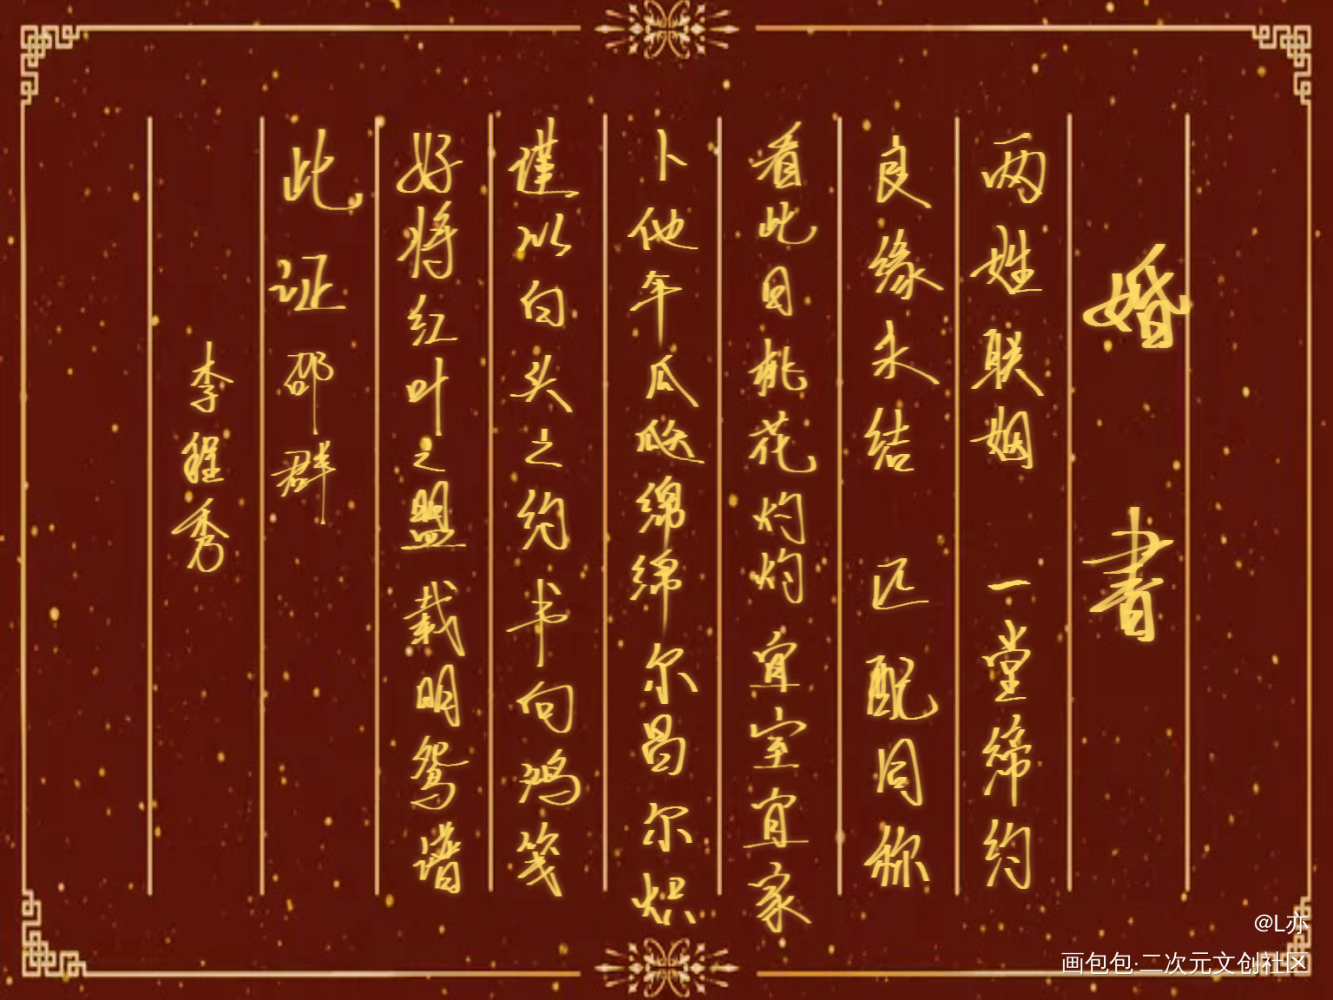 婚書
两姓联姻 一堂缔约
良缘永结 匹配同称
看此日桃花灼灼 宜室宜家
卜他年瓜瓞绵绵 尔昌尔炽
谨以白头之约 书向鸿笺
好将红叶之盟 载明鸳谱
此证 邵群
李程秀
@L亦
画包包·二次元文创社区